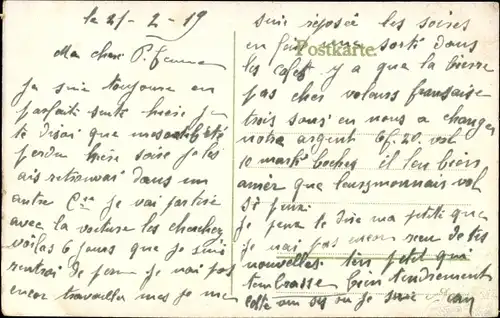 le 21-2-19
Ma cher P. femme
je suis toujours en
parfait santé hier je
te disai que mes
perdu hiere soire je les
ais retrouvai dans un
autre Cie je vai partire
avec la voiture les chercher
voilas 6 jours que je suis
rentrai de je nai pas
encor travailler mes je me
suis reposée les soires
en fait une sorti dans
Postkarte
les cafet y a que la bierre
pas cher voleurs fransaise
trois sous en nous a changer
notre argent 6f.20 vol
10 marks boches il bien
aimer que leurs monnais vol
si peux
je peux te dire ma petite que
je nai pas encor resu de tes
nouvelles ton petit qui
tembrasse bien tendrement